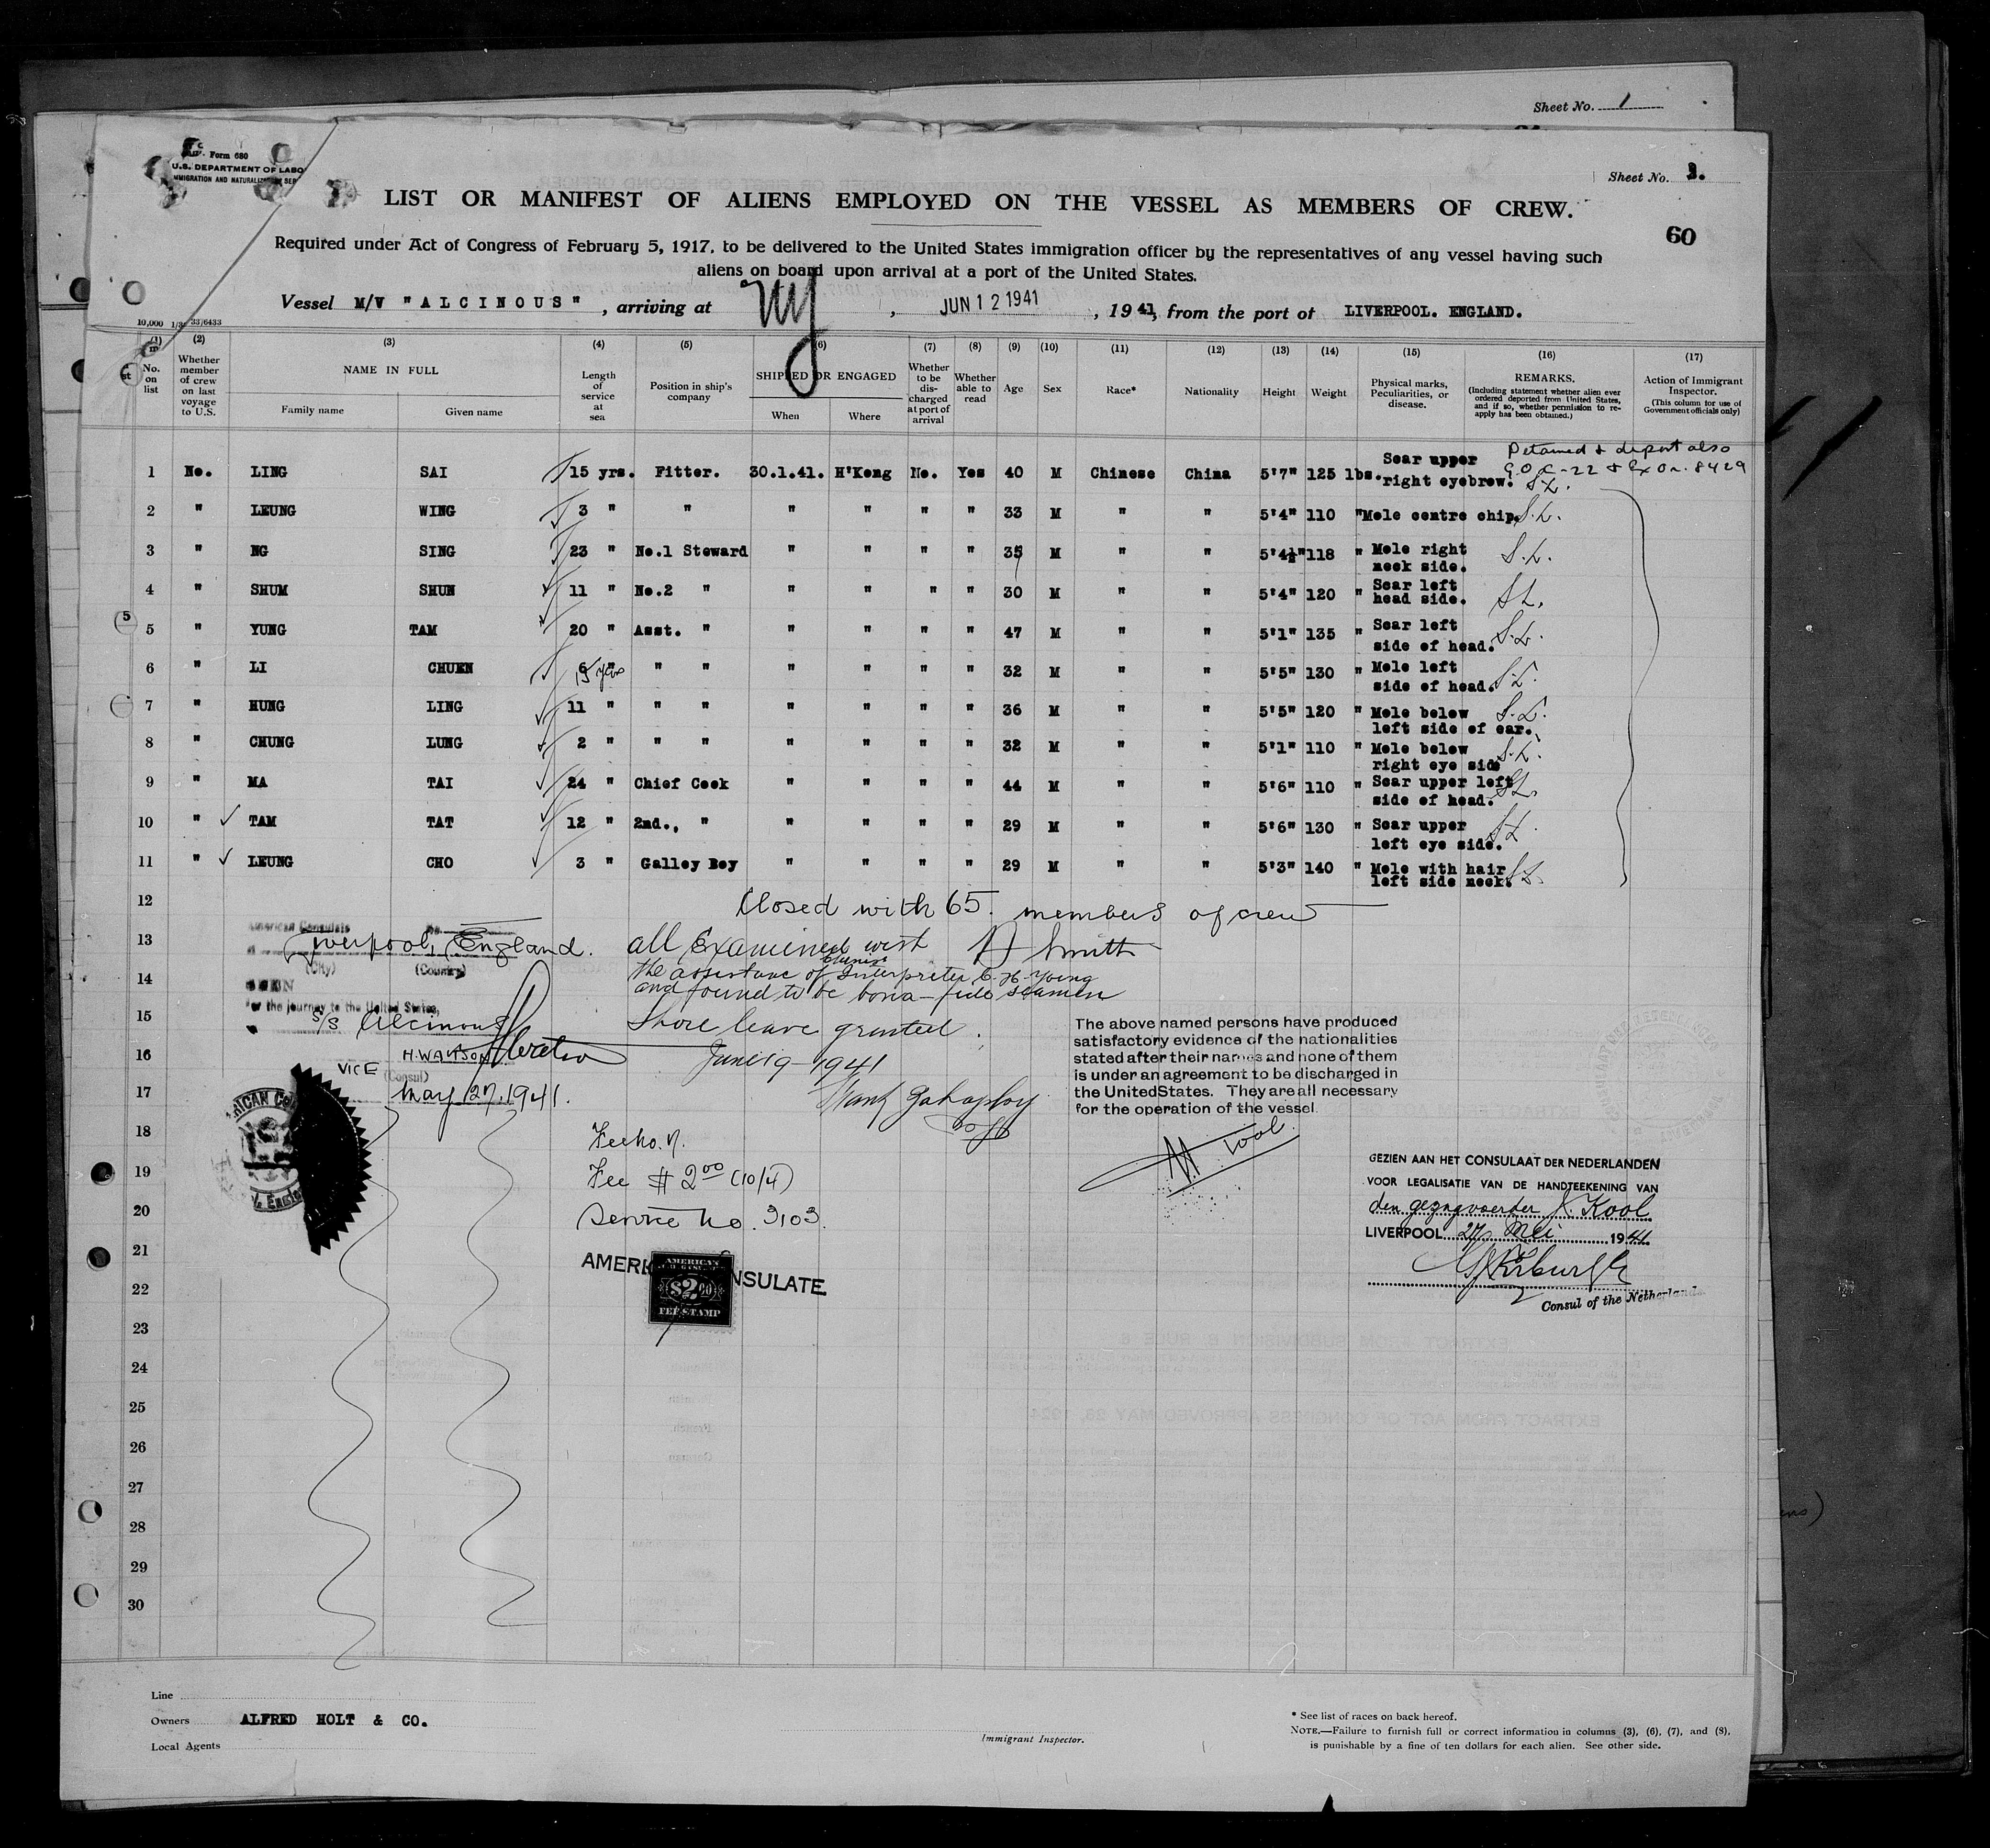 Sheet No. 1
Form 680
U.S. DEPARTMENT OF LABO
MMIGRATION AND NATURALIZATION SER
Sheet No. 3.
LIST OR MANIFEST OF ALIENS EMPLOYED ON THE VESSEL AS MEMBERS OF CREW.
60
Required under Act of Congress of February 5, 1917, to be delivered to the United States immigration officer by the representatives of any vessel having such
aliens on board upon arrival at a port of the United States.
Vessel M/V "ALCINOUS", arriving at NY, JUN 12 1941, 1941, from the port of LIVERPOOL. ENGLAND.
10,000 1/3. 33/6433
(1) (2) (3) (4) (5) (6) (7) (8) (9) (10) (11) (12) (13) (14) (15) (16) (17)
No. on list
Whether member of crew on last voyage to U.S.
NAME IN FULL
Family name Given name
Length of service at sea
Position in ship's company
SHIPPED OR ENGAGED
When Where
Whether to be discharged at port of arrival
Whether able to read
Age
Sex
Race*
Nationality
Height
Weight
Physical marks, Peculiarities, or disease.
REMARKS.
(Including statement whether alien ever ordered deported from United States, and if so, whether permission to re-apply has been obtained.)
Action of Immigrant Inspector.
(This column for use of Government officials only)
Detained & deport also
G.O. C-22 & Ex Or. 8429
1 No. LING SAI 15 yrs. Fitter. 30.1.41. H'Kong No. Yes 40 M Chinese China 5'7" 125 lbs. Scar upper right eyebrow. S.L.
2 " LEUNG WING 3 " " " " " " 33 M " " 5'4" 110 " Mole centre chip. S.L.
3 " NG SING 23 " No.1 Steward " " " " 35 M " " 5'4½" 118 " Mole right neck side. S.L.
4 " SHUM SHUN 11 " No.2 " " " " " 30 M " " 5'4" 120 " Scar left head side. S.L.
5 5 " YUNG TAM 20 " Asst. " " " " " 47 M " " 5'1" 135 " Scar left side of head. S.L.
6 " LI CHUEN 6 " 15 yrs " " " " " " 32 M " " 5'5" 130 " Mole left side of head. S.L.
7 " HUNG LING 11 " " " " " " " 36 M " " 5'5" 120 " Mole below left side of ear. S.L.
8 " CHUNG LUNG 2 " " " " " " " 32 M " " 5'1" 110 " Mole below right eye side S.L.
9 " MA TAI 24 " Chief Cook " " " " 44 M " " 5'6" 110 " Scar upper left side of head. S.L.
10 " TAM TAT 12 " 2nd., " " " " " 29 M " " 5'6" 130 " Scar upper left eye side. S.L.
11 " LEUNG CHO 3 " Galley Boy " " " " 29 M " " 5'3" 140 " Mole with hair left side neck. S.L.
12 Closed with 65 members of crew
American Consulate
13 Liverpool, England. all Examined with D Smith
(City) (Country)
14 the assistance of Chinese Interpreter C. H. Young
SEEN and found to be bona-fide seamen
For the journey to the United States,
15 S/S Alcinous Shore leave granted.
16 H. WATSON June 19-1941
VICE (Consul)
17 May 27, 1941.
The above named persons have produced
satisfactory evidence of the nationalities
stated after their names and none of them
is under an agreement to be discharged in
the United States. They are all necessary
for the operation of the vessel.
18 Fee No. 7.
19 Fee $ 2.00 (10/4)
20 Service No. 3103.
J. Kool
GEZIEN AAN HET CONSULAAT DER NEDERLANDEN
VOOR LEGALISATIE VAN DE HANDTEEKENING VAN
den gezagvoerder J. Kool
LIVERPOOL 27 Mei 1941.
Consul of the Netherlands
21 AMERICAN CONSULATE
AMERICAN
$2.00
FEE STAMP
22
23
24
25
26
27
28
29
30
Line
Owners ALFRED HOLT & CO.
Local Agents
Immigrant Inspector.
* See list of races on back hereof.
NOTE.—Failure to furnish full or correct information in columns (3), (6), (7), and (8),
is punishable by a fine of ten dollars for each alien. See other side.